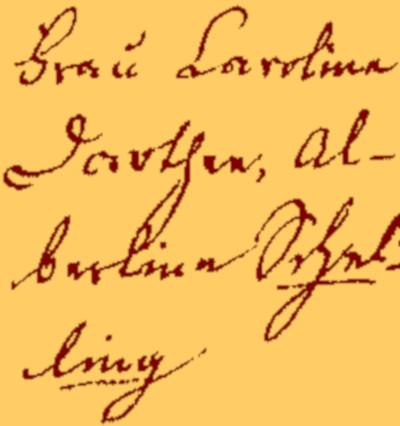 Frau Caroline
Dorothee, Al-
bertine Schel-
ling